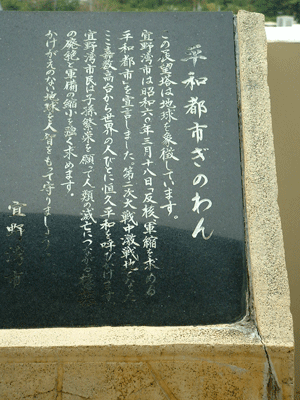 平和都市ぎのわん
この展望塔は地球を象徴しています。
宜野湾市は昭和六〇年三月十八日「反核、軍縮を求める
平和都市」を宣言しました。第二次大戦中激戦地となった
ここ嘉数高台から世界の人びとに恒久平和を呼びかけます
宜野湾市民は子孫繁栄を願って人類の滅亡につながる核兵器
の廃絶と軍備の縮小を強く求めます。
かけがえのない地球を人智をもって守りましょう
宜野湾市